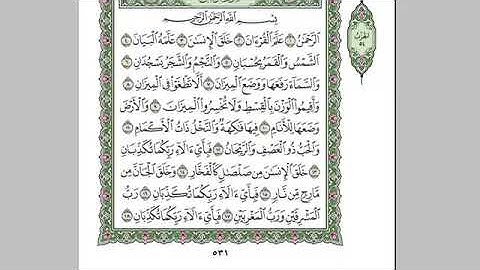 بِسْمِ ٱللَّهِ ٱلرَّحْمَٰنِ ٱلرَّحِيمِ
ٱلرَّحْمَٰنُ ١ عَلَّمَ ٱلْقُرْءَانَ ٢ خَلَقَ ٱلْإِنسَٰنَ ٣ عَلَّمَهُ ٱلْبَيَانَ ٤
ٱلشَّمْسُ وَٱلْقَمَرُ بِحُسْبَانٍ ٥ وَٱلنَّجْمُ وَٱلشَّجَرُ يَسْجُدَانِ ٦
وَٱلسَّمَآءَ رَفَعَهَا وَوَضَعَ ٱلْمِيزَانَ ٧ أَلَّا تَطْغَوْا۟ فِى ٱلْمِيزَانِ ٨
وَأَقِيمُوا۟ ٱلْوَزْنَ بِٱلْقِسْطِ وَلَا تُخْسِرُوا۟ ٱلْمِيزَانَ ٩ وَٱلْأَرْضَ
وَضَعَهَا لِلْأَنَامِ ١٠ فِيهَا فَٰكِهَةٌ وَٱلنَّخْلُ ذَاتُ ٱلْأَكْمَامِ ١١
وَٱلْحَبُّ ذُو ٱلْعَصْفِ وَٱلرَّيْحَانُ ١٢ فَبِأَىِّ ءَالَآءِ رَبِّكُمَا تُكَذِّبَانِ
١٣ خَلَقَ ٱلْإِنسَٰنَ مِن صَلْصَٰلٍ كَٱلْفَخَّارِ ١٤ وَخَلَقَ ٱلْجَآنَّ مِن
مَّارِجٍ مِّن نَّارٍ ١٥ فَبِأَىِّ ءَالَآءِ رَبِّكُمَا تُكَذِّبَانِ ١٦ رَبُّ
ٱلْمَشْرِقَيْنِ وَرَبُّ ٱلْمَغْرِبَيْنِ ١٧ فَبِأَىِّ ءَالَآءِ رَبِّكُمَا تُكَذِّبَانِ ١٨
٥٣١